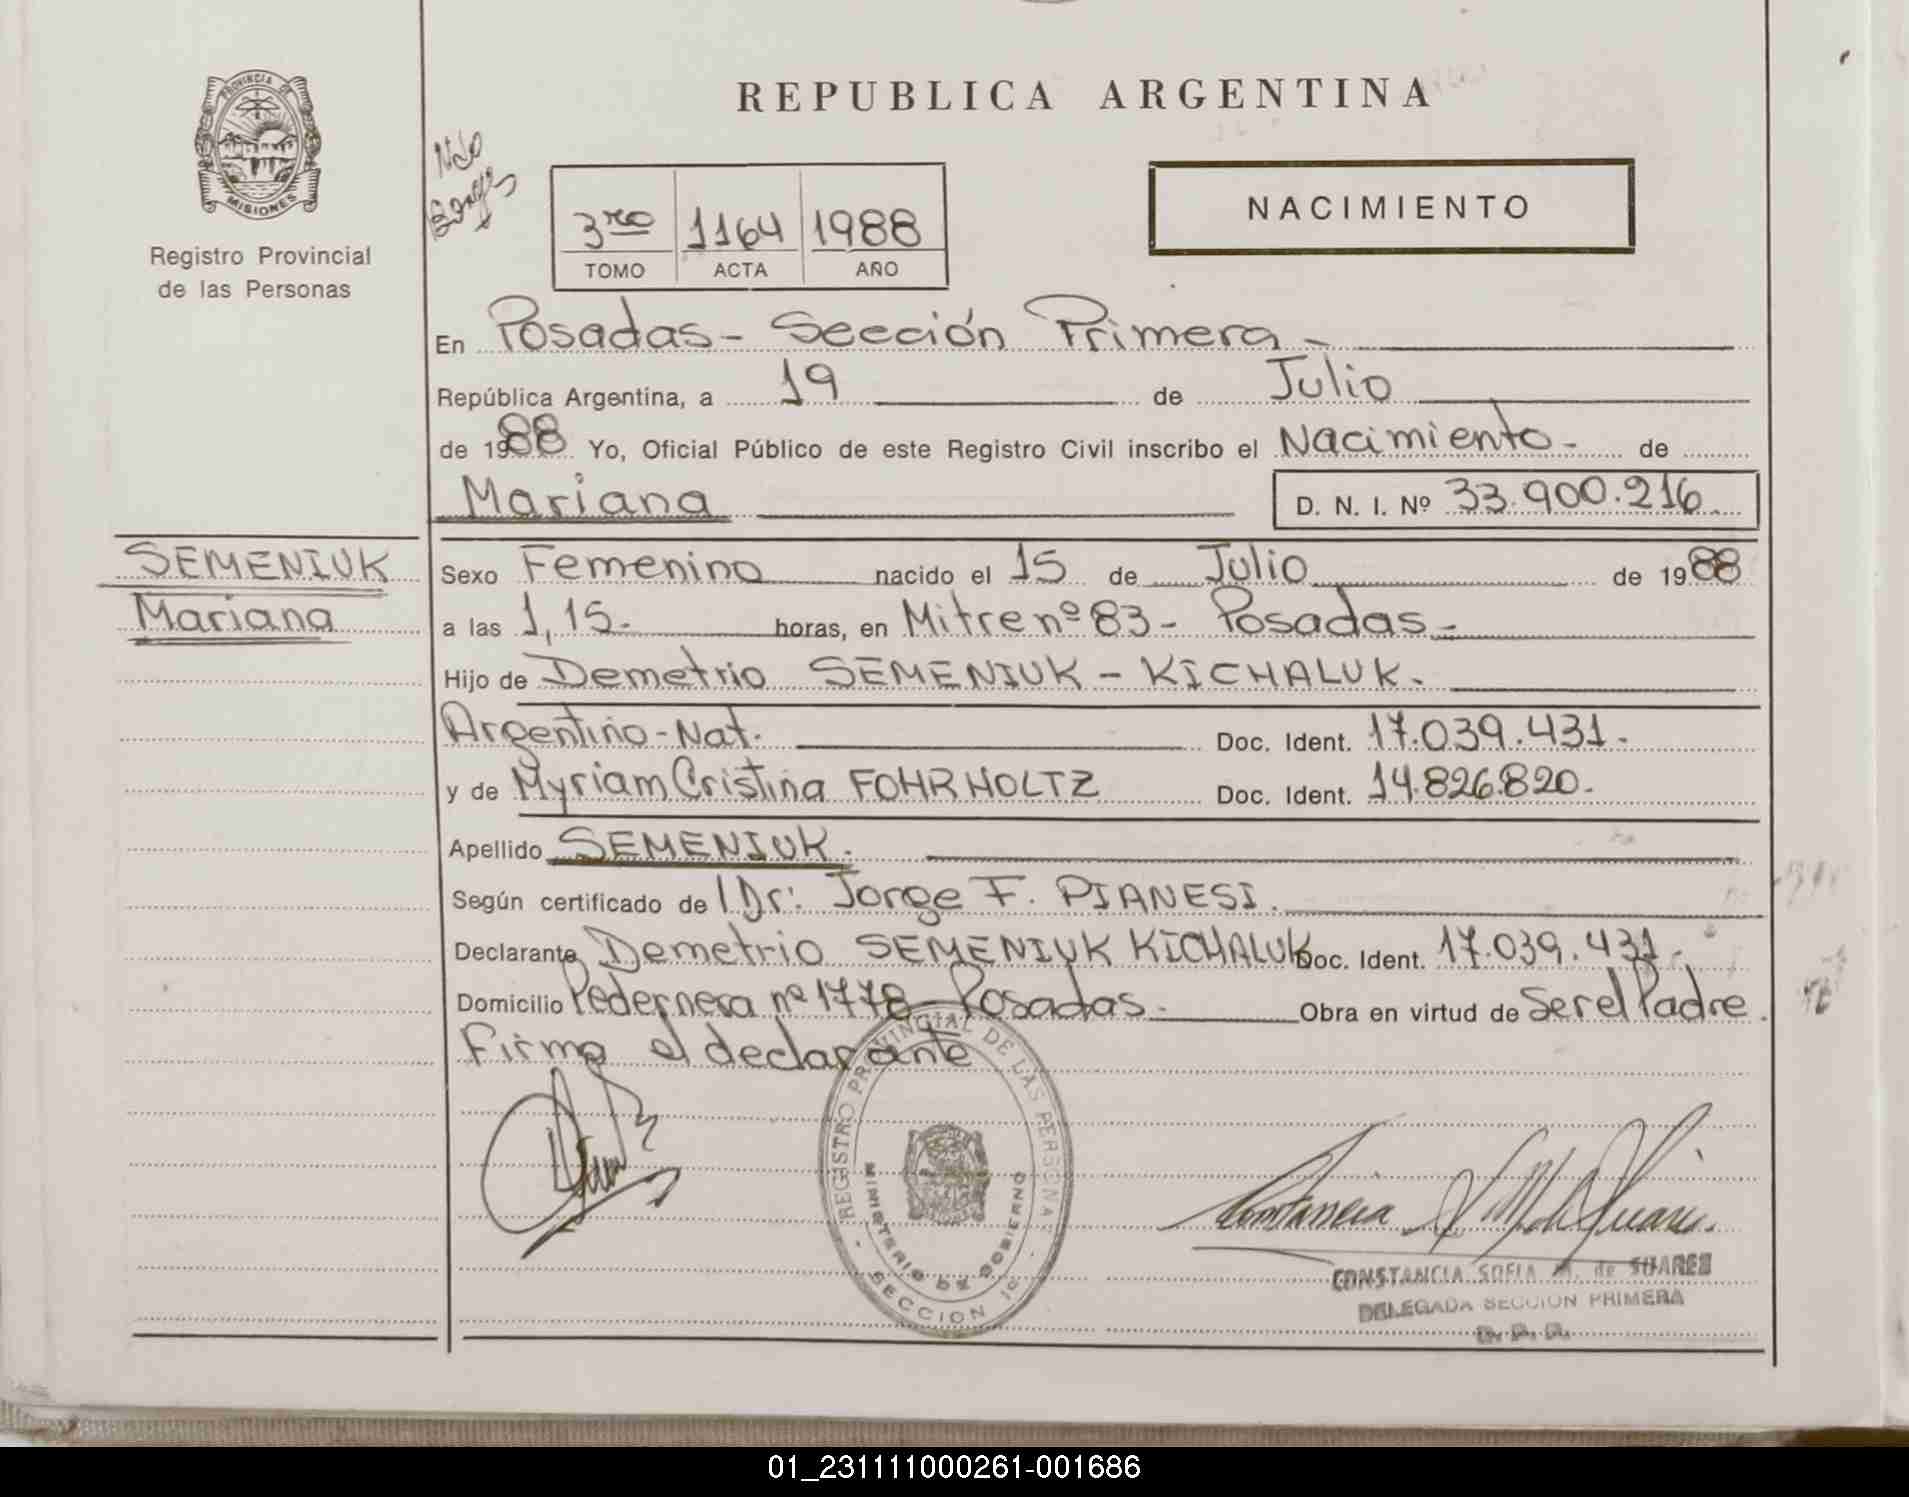 PROVINCIA DE
MISIONES
Registro Provincial
de las Personas
REPUBLICA ARGENTINA
3ro 1164 1988
TOMO ACTA AÑO
NACIMIENTO
En Posadas - Sección Primera -
República Argentina, a 19 de Julio
de 1988 Yo, Oficial Público de este Registro Civil inscribo el Nacimiento - de
Mariana D. N. I. Nº 33.900.216
SEMENIUK
Mariana
Sexo Femenino nacido el 15 de Julio de 1988
a las 1,15.- horas, en Mitre nº 83 - Posadas -
Hijo de Demetrio SEMENIUK - KICHALUK.
Argentino - Nat. Doc. Ident. 17.039.431.-
y de Myriam Cristina FOHRHOLTZ Doc. Ident. 14.826.820.-
Apellido SEMENIUK.
Según certificado de Dr: Jorge F. PIANESI.
Declarante Demetrio SEMENIUK KICHALUK Doc. Ident. 17.039.431.-
Domicilio Pedernera nº 1778 - Posadas. Obra en virtud de Ser el Padre.
Firma el declarante
REGISTRO PROVINCIAL DE LAS PERSONAS
MINISTERIO DE GOBIERNO
SECCION 1º
CONSTANCIA SOFIA M. de SUAREZ
DELEGADA SECCION PRIMERA
R. P. P.
01_231111000261-001686